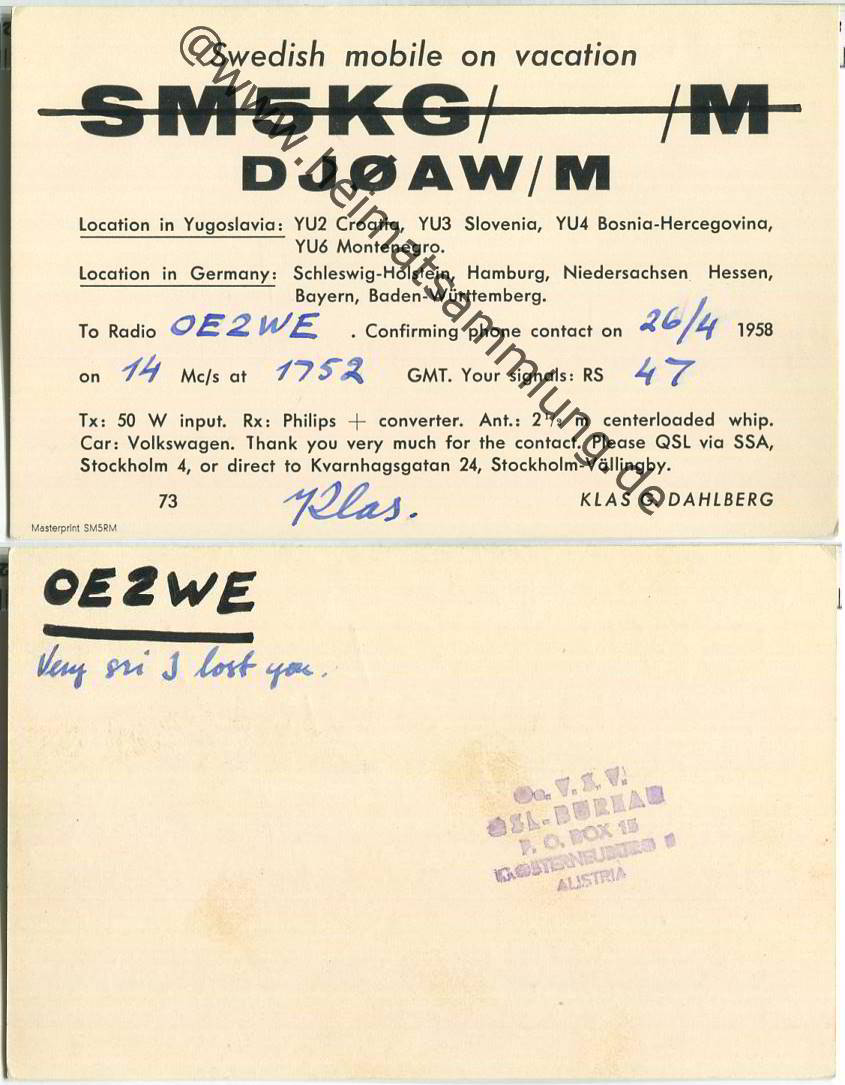 Swedish mobile on vacation
SM5KG/ /M
DJØAW/M
Location in Yugoslavia: YU2 Croatia, YU3 Slovenia, YU4 Bosnia-Hercegovina,
YU6 Montenegro.
Location in Germany: Schleswig-Holstein, Hamburg, Niedersachsen Hessen,
Bayern, Baden-Württemberg.
To Radio OE2WE . Confirming phone contact on 26/4 1958
on 14 Mc/s at 1752 GMT. Your signals: RS 47
Tx: 50 W input. Rx: Philips + converter. Ant.: m centerloaded whip.
Car: Volkswagen. Thank you very much for the contact. Please QSL via SSA,
Stockholm 4, or direct to Kvarnhagsgatan 24, Stockholm-Vällingby.
73 Klas. KLAS G. DAHLBERG
Masterprint SM5RM
@www.heimatsammlung.de
OE2WE
Very sri I lost you.
Oe. V. S. V.
QSL-BUREAU
P. O. BOX 15
KLOSTERNEUBURG
AUSTRIA